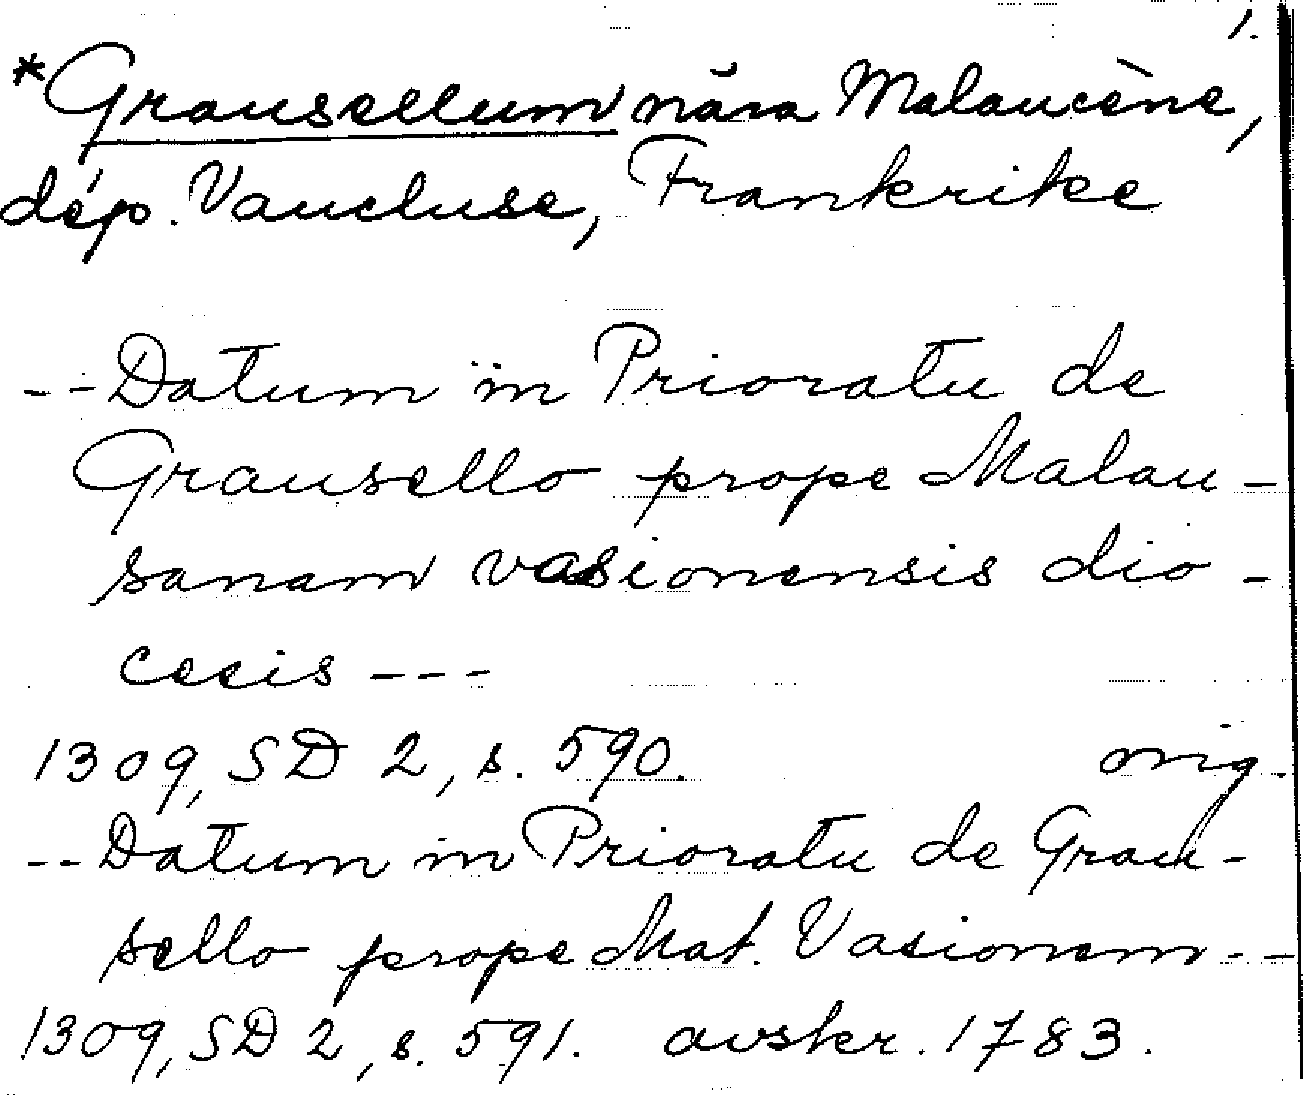 1.
*Grausellum nära Malaucène,
dép. Vaucluse, Frankrike
-- Datum in Prioratu de
Grausello prope Malau-
sanam vasionensis dio-
cecis ---
1309, SD 2, s. 590. orig.
-- Datum in Prioratu de Grau-
sello prope Mat. Vasionem --
1309, SD 2, s. 591. avskr. 1783.